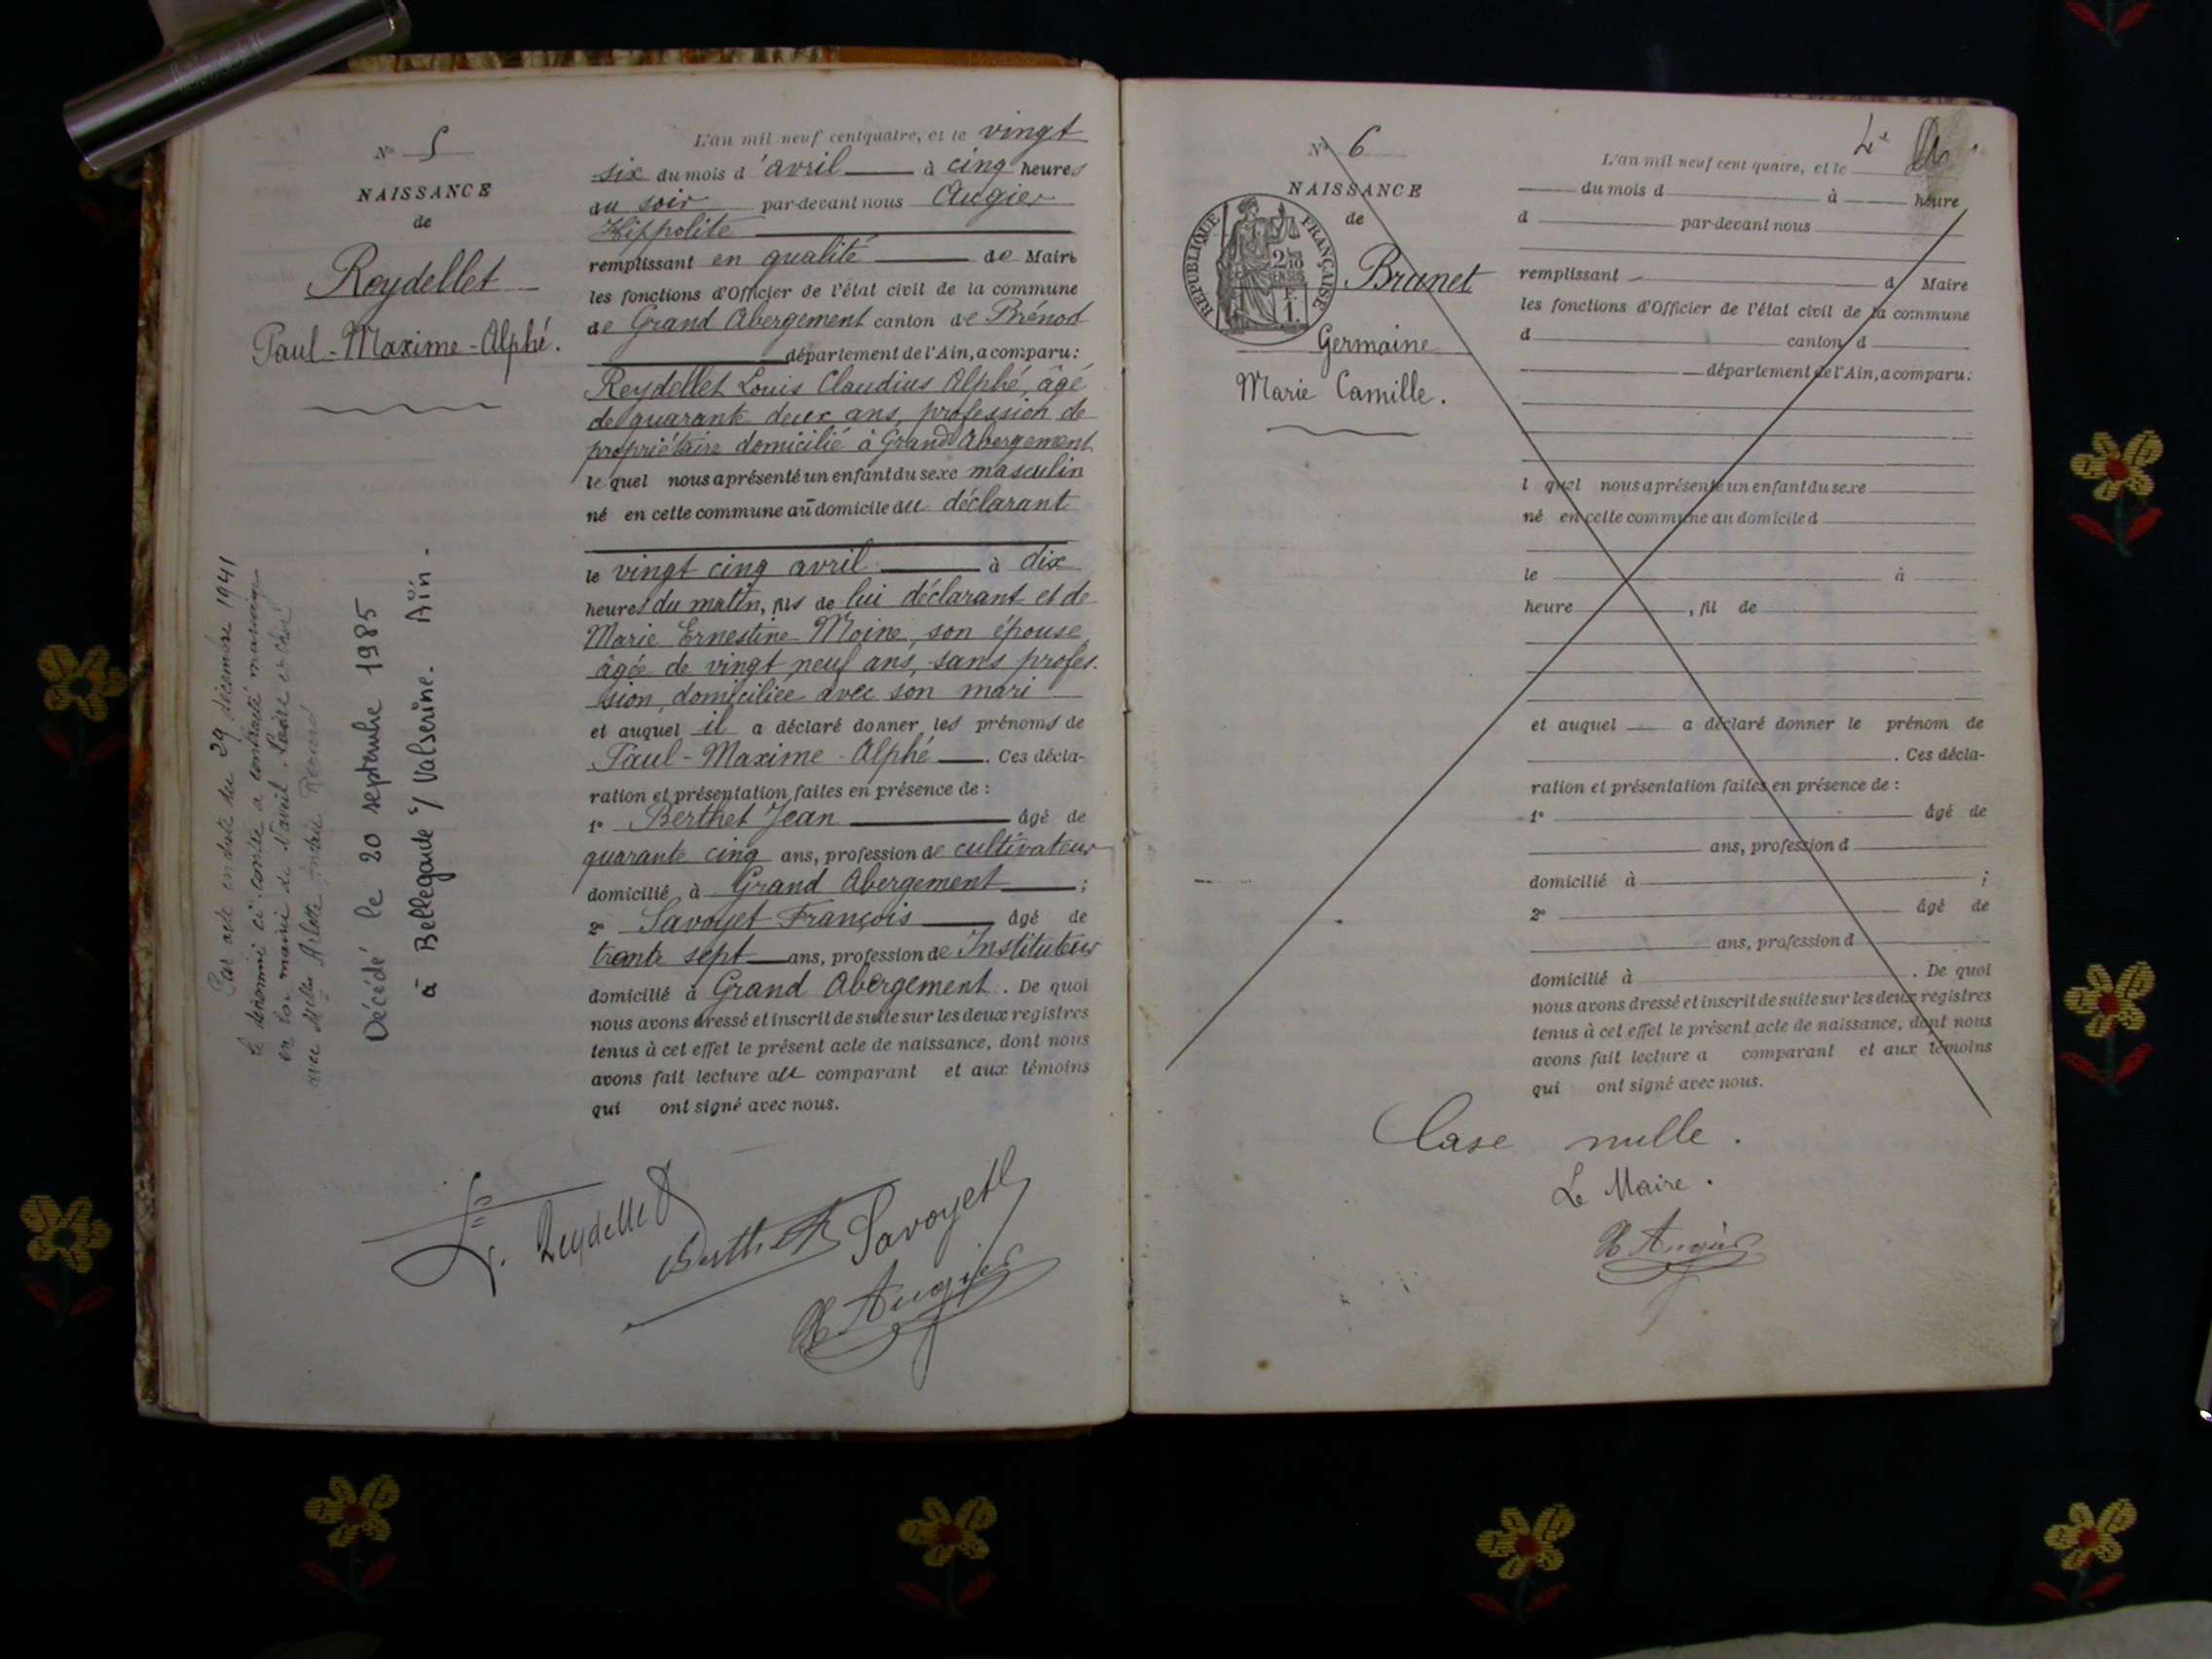 N° 5
NAISSANCE
de
Reydellet
Paul-Maxime-Alphé.
Par acte en date du 29 décembre 1941
le dénommé ci-contre a contracté mariage
en la mairie de
avec Melle Arlette Renard
Décédé le 20 septembre 1985
à Bellegarde s/ Valserine. Ain.
L'an mil neuf cent quatre, et le vingt
six du mois d'avril à cinq heures
du soir par-devant nous Augier
Hippolite
remplissant en qualité de Maire
les fonctions d'Officier de l'état civil de la commune
de Grand Abergement canton de Brénod
département de l'Ain, a comparu:
Reydellet Louis Claudius Alphé, âgé
de quarante deux ans, profession de
propriétaire domicilié à Grand Abergement
lequel nous a présenté un enfant du sexe masculin
né en cette commune au domicile du déclarant
le vingt cinq avril à dix
heures du matin, fils de lui déclarant et de
Marie Ernestine Moine, son épouse,
âgée de vingt neuf ans, sans profes-
sion, domiciliée avec son mari
et auquel il a déclaré donner les prénoms de
Paul-Maxime-Alphé. Ces décla-
ration et présentation faites en présence de :
1° Berthet Jean âgé de
quarante cinq ans, profession de cultivateur
domicilié à Grand Abergement ;
2° Savoyet François âgé de
trente sept ans, profession de Instituteur
domicilié à Grand Abergement. De quoi
nous avons dressé et inscrit de suite sur les deux registres
tenus à cet effet le présent acte de naissance, dont nous
avons fait lecture au comparant et aux témoins
qui ont signé avec nous.
L. Reydellet
Berthet Savoyet
H Augier
N° 6
NAISSANCE
de
REPUBLIQUE FRANÇAISE
2/10 EN SUS
F. 1.
Brunet
Germaine
Marie Camille.
L'an mil neuf cent quatre, et le Le
du mois d à heure
d par-devant nous
remplissant d Maire
les fonctions d'Officier de l'état civil de la commune
d canton d
département de l'Ain, a comparu:
l quel nous a présenté un enfant du sexe
né en cette commune au domicile d
le à
heure , fil de
et auquel a déclaré donner le prénom de
. Ces décla-
ration et présentation faites en présence de :
1° âgé de
ans, profession d
domicilié à ;
2° âgé de
ans, profession d
domicilié à . De quoi
nous avons dressé et inscrit de suite sur les deux registres
tenus à cet effet le présent acte de naissance, dont nous
avons fait lecture a comparant et aux témoins
qui ont signé avec nous.
Case nulle.
Le Maire.
H Augier